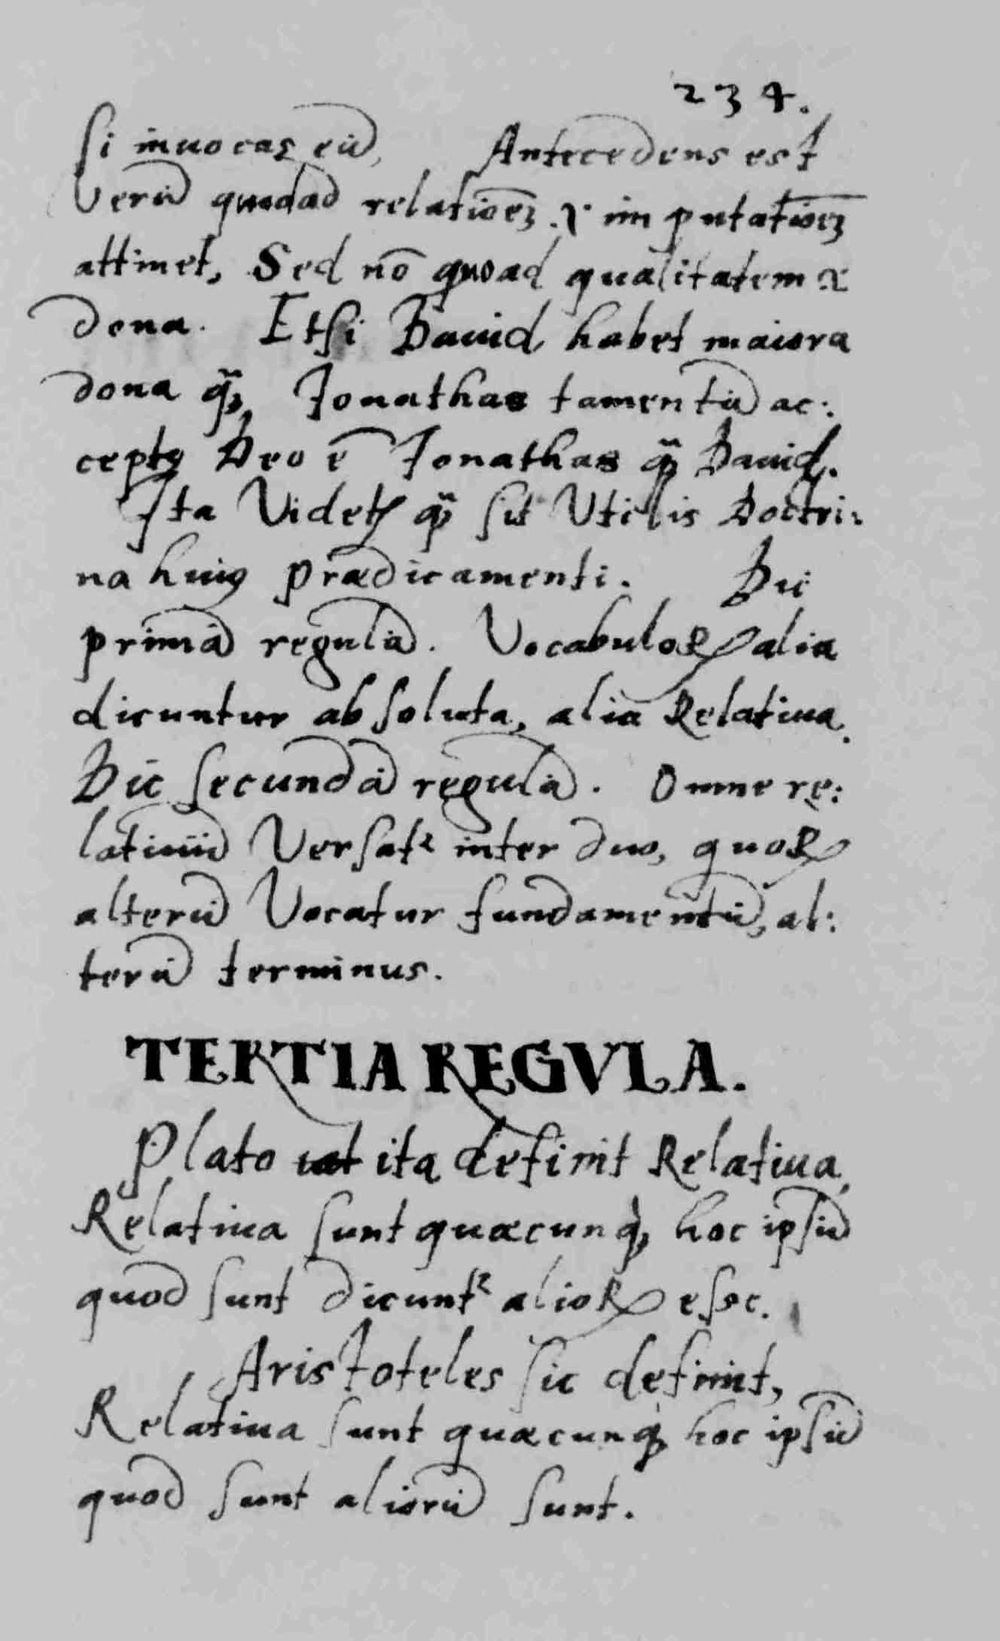 234.
si inuocas eū, Antecedens est
Verū quodad relatiōeȝ. & imputatiōeȝ
attinet, Sed nō quoad qualitatem &
dona. Etsi Dauid habet maiora
dona q̃ȝ, Jonathas tamen tā ac:
ceptꝰ Deo ē Jonathas q̃ȝ Dauid.
Ita Videtꝭ q̃ȝ sit Vtilis Doctri:
na huiꝰ prædicamenti. Dic
primā regulā. Vocabuloꝝ alia
dicuntur absoluta, alia Relatiua.
Dic secundā regulā. Omne re:
latiuū Versatᷣ inter duo, quoꝝ
alterū Vocatur fundamentū, al:
terū terminus.
TERTIA REGVLA.
Plato ita definit Relatiua,
Relatiua sunt quæcunqȝ hoc ipsū
quod sunt dicuntᷣ alioꝝ esse.
Aristoteles sic definit,
Relatiua sunt quæcunqȝ hoc ipsū
quod sunt aliorū sunt.